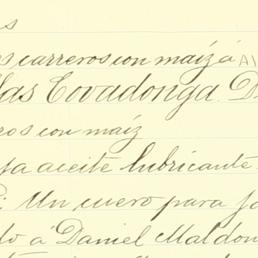 s
os carreros con maíz á Al
llas Covadonga. D
ros con maíz
ja aceite lubricante
: Un cuero para ja
do á Daniel Maldon